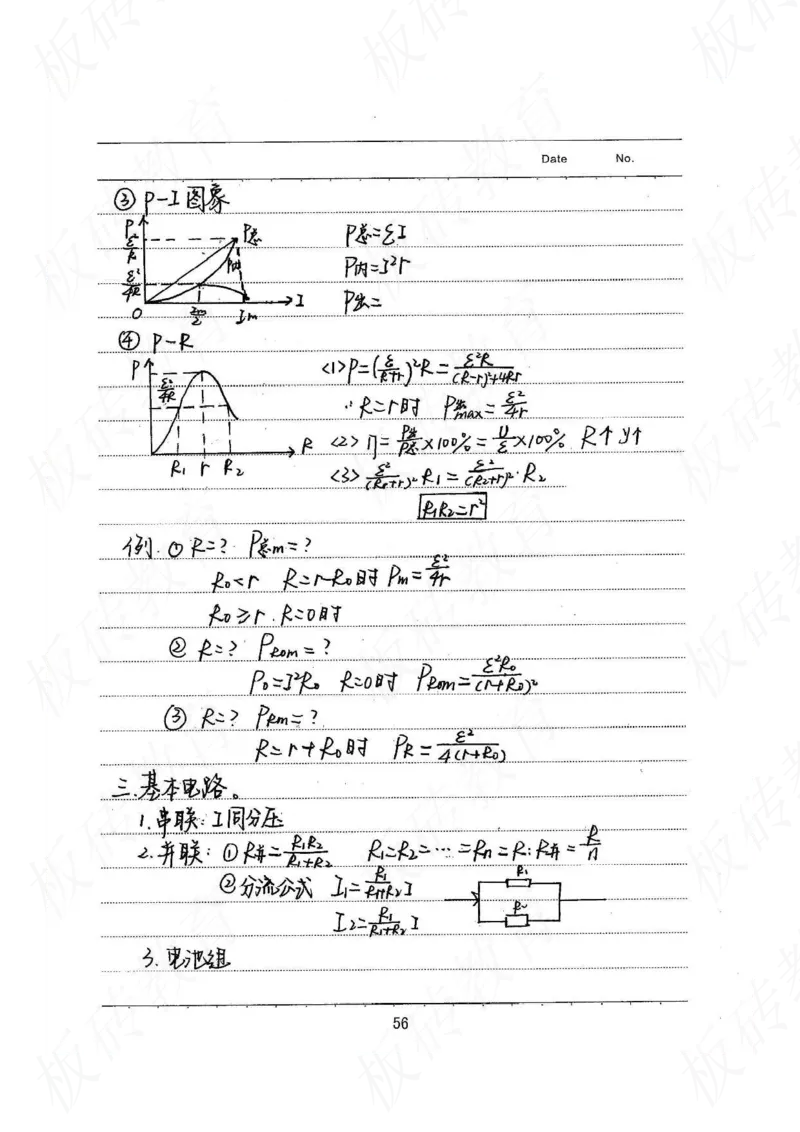 Date No.
③ P-I 图象
P
ε²/R
P总
P总=εI
P内
P内=I²r
ε²/4R
I
P出=
O
Im/2
Im
④ P-R
P
<1>P=(ε/(R+r))²R=ε²R/((R-r)²+4Rr)
ε²/4R
∴R=r时 P出max=ε²/4r
R
<2> η=P出/P总×100%=U/ε×100% R↑ η↑
R₁ r R₂
<3> ε²/(R₁+r)²·R₁=ε²/(R₂+r)²·R₂
R₁R₂=r²
例.① R=? P总m=?
R₀<r R=r-R₀时 Pm=ε²/4r
R₀≥r.R=0时
② R=? PR₀m=?
P₀=I²R₀ R=0时 PR₀m=ε²R₀/(r+R₀)²
③ R=? PRm=?
R=r+R₀时 PR=ε²/4(r+R₀)
三.基本电路。
1.串联:I同分压
2.并联:①R并=R₁R₂/(R₁+R₂) R₁=R₂=…=Rn=R:R并=R/n
②分流公式 I₁=R₁/(R₁+R₂) I
R₁
R₂
I₂=R₁/(R₁+R₂) I
3.电池组
56
板砖教育